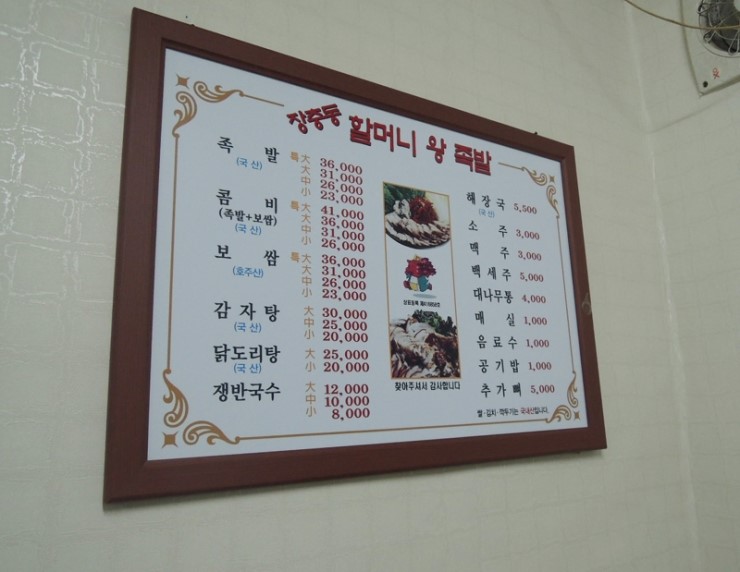 장충동 할머니 왕 족발
족 발
(국 산)
특大 36,000
大 31,000
中 26,000
小 23,000
콤 비
(족발+보쌈)
(국 산)
특大 41,000
大 36,000
中 31,000
小 26,000
보 쌈
(호주산)
특大 36,000
大 31,000
中 26,000
小 23,000
감 자 탕
(국 산)
大 30,000
中 25,000
小 20,000
닭도리탕
(국 산)
大 25,000
小 20,000
쟁반국수
大 12,000
中 10,000
小 8,000
찾아주셔서 감사합니다
해 장 국 5,500
(국 산)
소 주 3,000
맥 주 3,000
백 세 주 5,000
대나무통 4,000
매 실 1,000
음 료 수 1,000
공 기 밥 1,000
추 가 뼈 5,000
쌀·김치·깍두기는 국내산입니다.